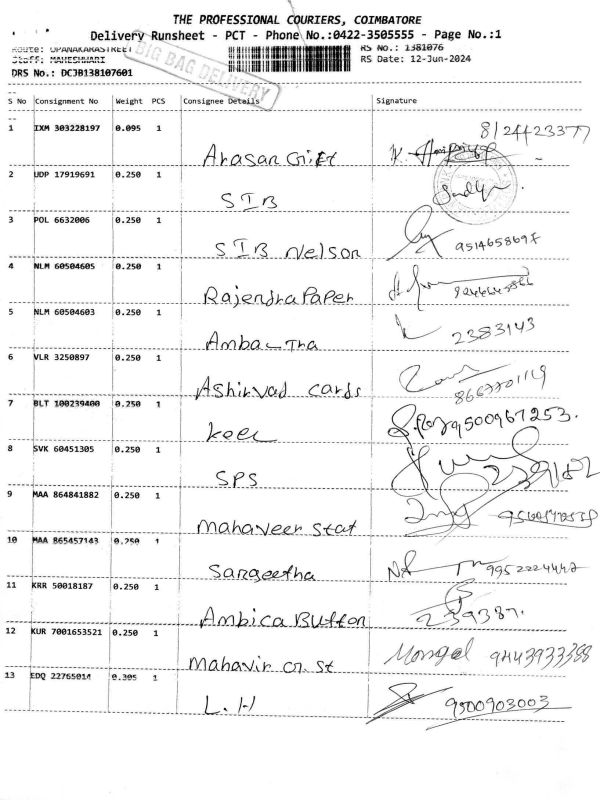 THE PROFESSIONAL COURIERS, COIMBATORE
Delivery Runsheet - PCT - Phone No.:0422-3505555 - Page No.:1
Route: OPANAKARASTREET RS No.: 1381076
Staff: MAHESHWARI RS Date: 12-Jun-2024
BIG BAG DELIVERY
DRS No.: DCJB138107601
S No Consignment No Weight PCS Consignee Details Signature
1 IXM 303228197 0.095 1
Arasan Gift
2 UDP 17919691 0.250 1
SIB
3 POL 6632006 0.250 1
SIB Nelson
4 NLM 60504605 0.250 1
Rajendra Paper
5 NLM 60504603 0.250 1 2383143
6 VLR 3250897 0.250 1
Ashirvad cards
7 BLT 100239400 0.250 1 9500967253.
8 SVK 60451305 0.250 1
SPS
9 MAA 864841882 0.250 1
Mahaveer Stat
10 MAA 865457143 0.250 1
Sangeetha
11 KRR 50018187 0.250 1
Ambica Button 239387.
12 KUR 7001653521 0.250 1
Mahavir Gn. St Mongal 9443933388
13 EDQ 22765014 0.305 1
L.H 9500903003